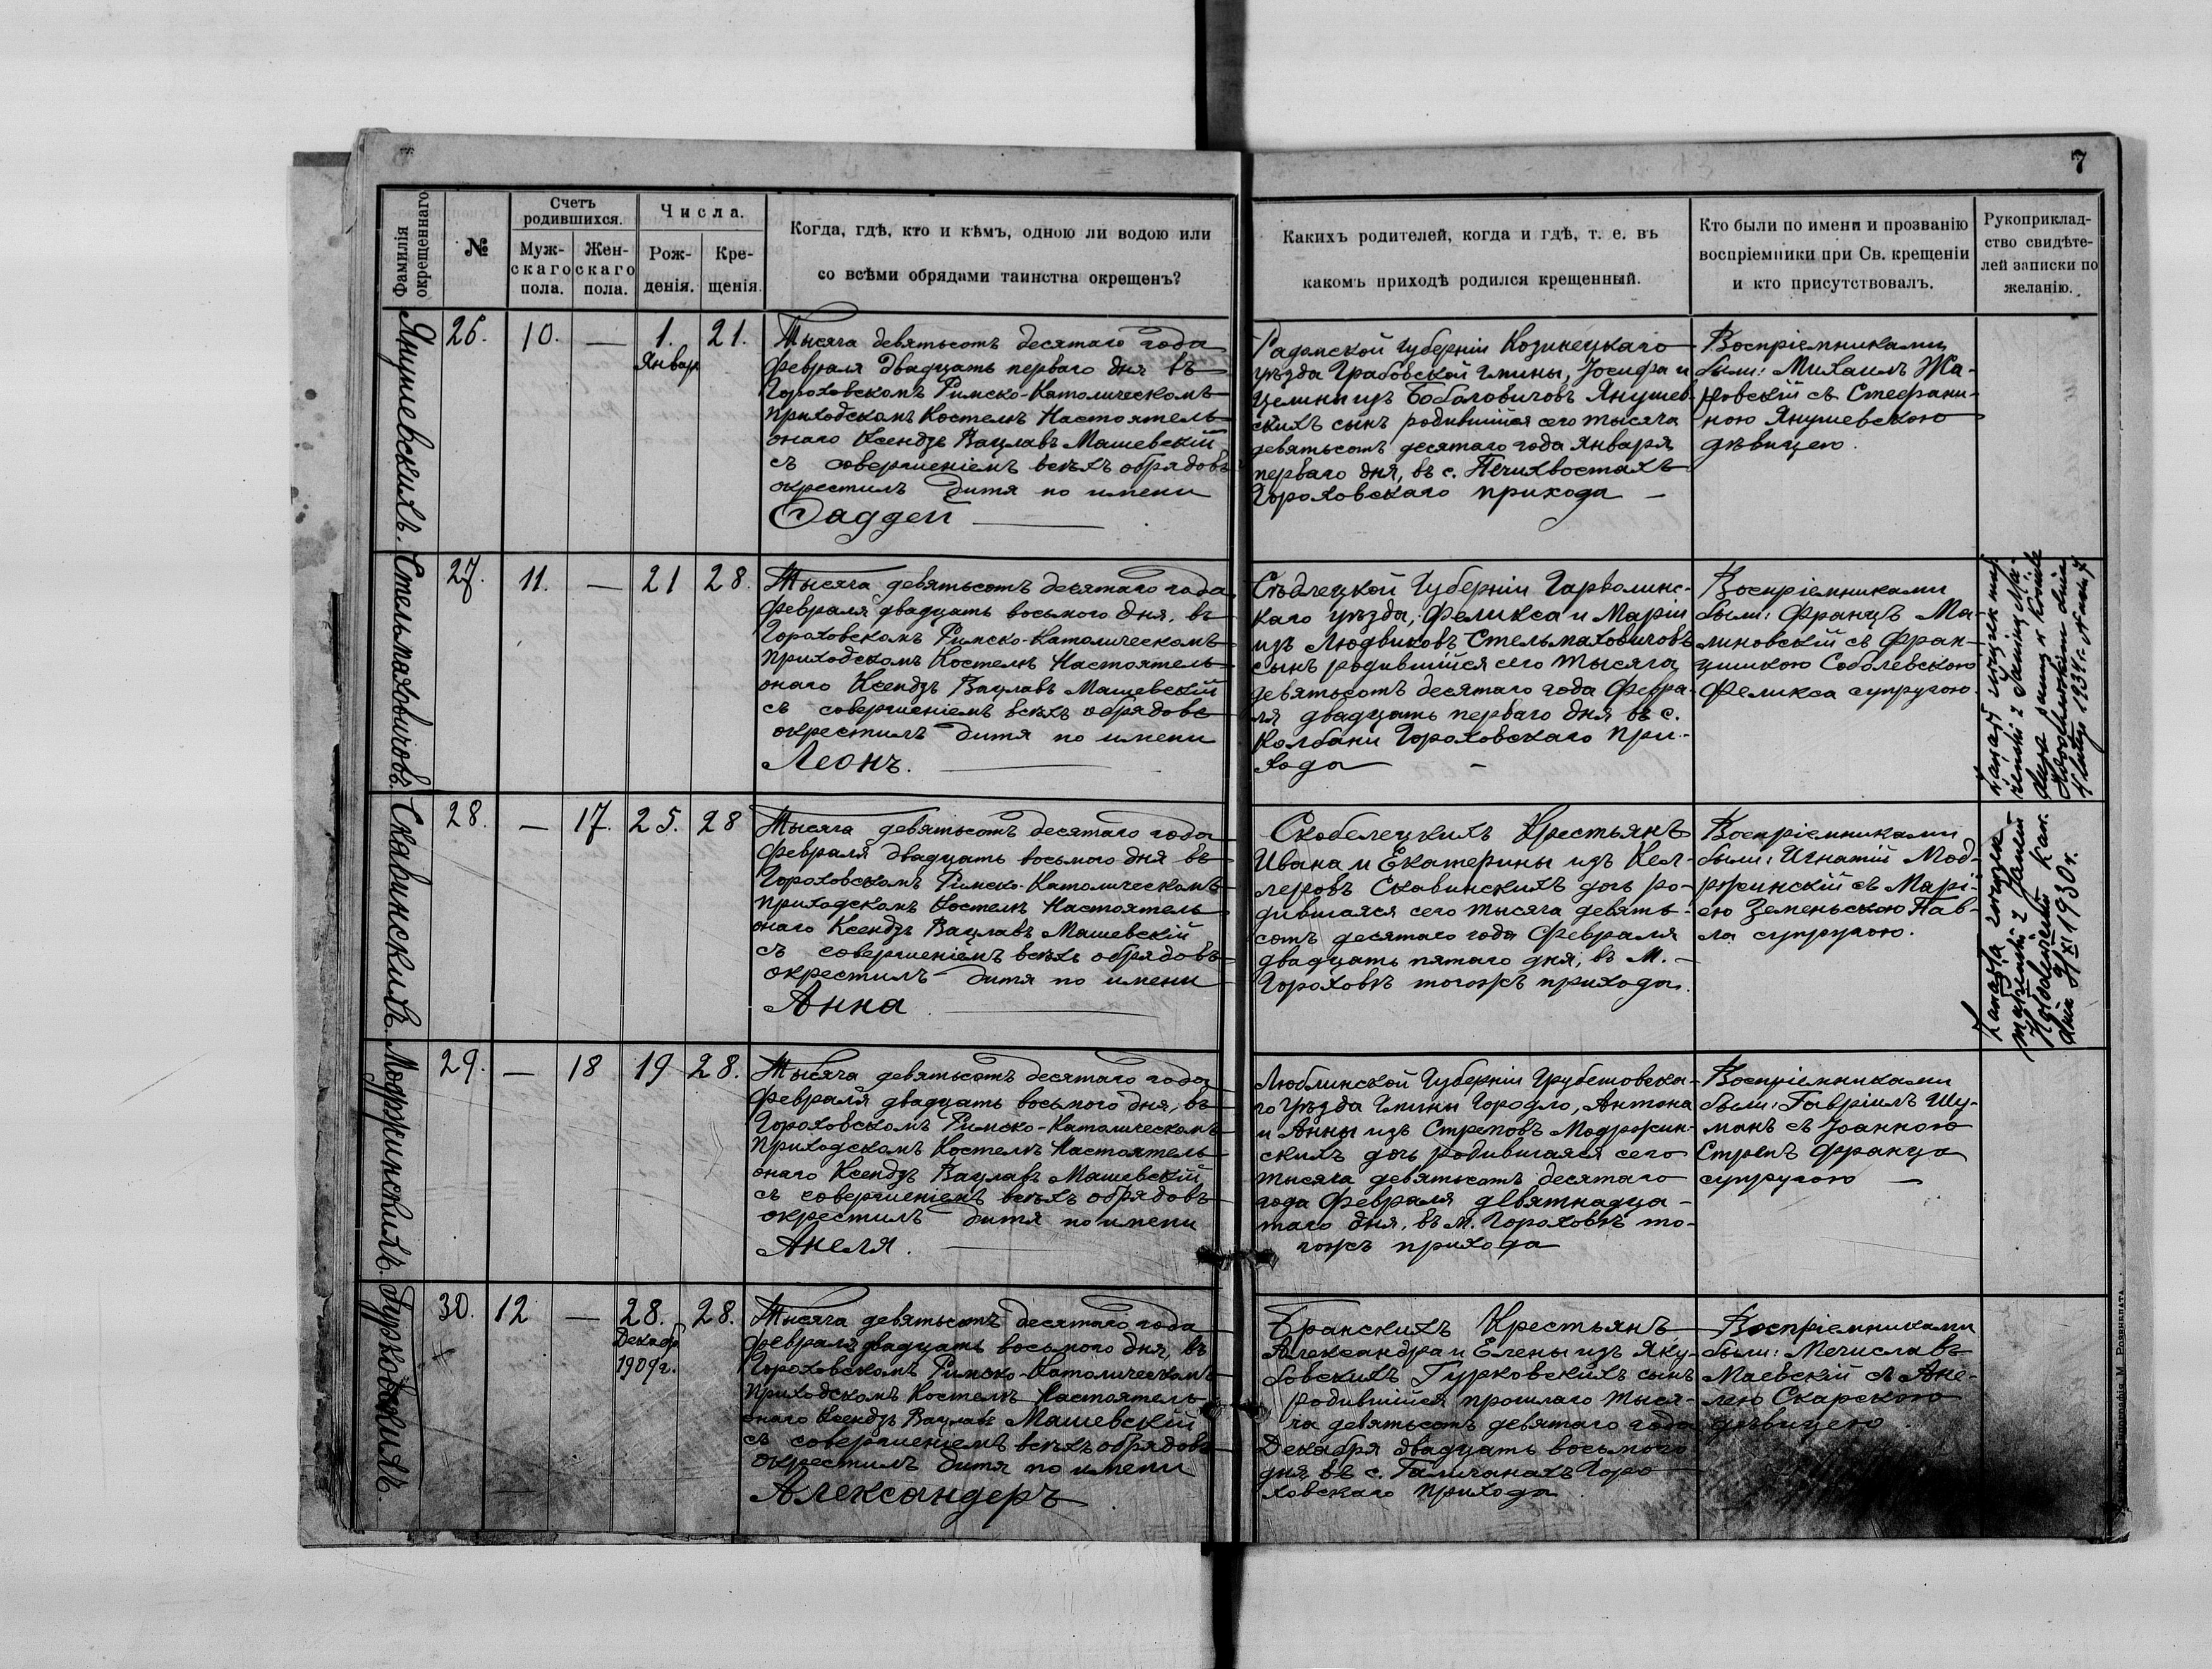 7
Фамилія
окрещеннаго
№
Счетъ
родившихся.
Муж-
скаго
пола.
Жен-
скаго
пола.
Числа.
Рож-
денія.
Кре-
щенія.
Когда, гдѣ, кто и кѣмъ, одною ли водою или
со всѣми обрядами таинства окрещенъ?
Какихъ родителей, когда и гдѣ, т. е. въ
какомъ приходѣ родился крещенный.
Кто были по имени и прозванію
воспріемники при Св. крещеніи
и кто присутствовалъ.
Рукоприклад-
ство свидѣте-
лей записки по
желанію.
Янушевскихъ.
26. 10. — 1. 21.
Январ
Тысяча девятьсотъ десятаго года
Февраля двадцать перваго дня въ
Гороховскомъ Римско-Католическомъ
Приходскомъ Костелѣ Настоятель
онаго Ксендзъ Вацлавъ Машевскій
съ совершеніемъ всѣхъ обрядовъ
окрестилъ дитя по имени
Фаддей
Радомской Губерніи Козинецкаго
уѣзда Грабовской гмины, Іосифа и
Целины изъ Янушев-
скихъ сынъ родившійся сего тысяча
девятьсотъ десятаго года Января
перваго дня, въ с. Печихвостахъ
Гороховскаго прихода —
Воспріемниками
были: Михаилъ Жа-
ровскій съ Стефани-
ною Янушевскою
дѣвицею.
Стельмаховичовъ.
27. 11. — 21 28.
Тысяча девятьсотъ десятаго года
Февраля двадцать восьмого дня, въ
Гороховскомъ Римско-Католическомъ
Приходскомъ Костелѣ Настоятель
онаго Ксендзъ Вацлавъ Машевскій
съ совершеніемъ всѣхъ обрядовъ
окрестилъ дитя по имени
Леонъ.
Сѣдлецкой Губерніи Гарволинс-
каго уѣзда, Феликса и Маріи
изъ Людвиковъ Стельмаховичовъ
сынъ родившійся сего тысяча
девятьсотъ десятаго года Февра-
ля двадцать перваго дня въ с.
Колбани Гороховскаго При-
хода —
Воспріемниками
были: Францъ Ма-
линовскій съ Фран-
цишкою Соболевскою
Феликса супругою.
1934 r.
Скавинскихъ.
28. — 17. 25. 28
Тысяча девятьсотъ десятаго года
Февраля двадцать восьмого дня въ
Гороховскомъ Римско-Католическомъ
Приходскомъ Костелѣ Настоятель
онаго Ксендзъ Вацлавъ Машевскій
съ совершеніемъ всѣхъ обрядовъ
окрестилъ дитя по имени
Анна.
Скобелецкихъ Крестьянъ
Ивана и Екатерины изъ Кел-
леровъ Скавинскихъ дочь ро-
дившаяся сего тысяча девять-
сотъ десятаго года Февраля
двадцать пятаго дня, въ М. —
Гороховѣ тогожъ прихода.
Воспріемниками
были: Игнатій Мод-
ржинскій съ Марі-
ею Земеньскою Пав-
ла супругою.
1930 r.
Моджинскихъ.
29. — 18 19 28.
Тысяча девятьсотъ десятаго года
Февраля двадцать восьмого дня, въ
Гороховскомъ Римско-Католическомъ
Приходскомъ Костелѣ Настоятель
онаго Ксендзъ Вацлавъ Машевскій
съ совершеніемъ всѣхъ обрядовъ
окрестилъ дитя по имени
Анеля.
Люблинской Губерніи Грубешовска-
го Уѣзда Гмины Городло, Антона
и Анны изъ Стреповъ Модржин-
скихъ дочь родившаяся сего
тысяча девятьсотъ десятаго
года Февраля девятнадца-
таго дня, въ м. Гороховѣ то-
гожъ прихода
Воспріемниками
были: Гавріилъ Шу-
манъ съ Іоанною
Стрепъ Франца
супругою —
Гурковскихъ.
30. 12 — 28. 28.
Декабр
1909 г.
Тысяча девятьсотъ десятаго года
Февраля двадцать восьмого дня, въ
Гороховскомъ Римско-Католическомъ
Приходскомъ Костелѣ Настоятель
онаго Ксендзъ Вацлавъ Машевскій
съ совершеніемъ всѣхъ обрядовъ
окрестилъ дитя по имени
Александеръ
Бранскихъ Крестьянъ
Александра и Елены изъ Яку-
бовскихъ Гурковскихъ сынъ
родившійся прошлаго тыся-
ча девятьсотъ девятаго года
Декабря двадцать восьмого
дня въ с. Галичанахъ Горо-
ховскаго Прихода.
Воспріемниками
были: Мечиславъ
Маевскій съ Ане-
лею Скарскою
дѣвицею.
Типографія М.